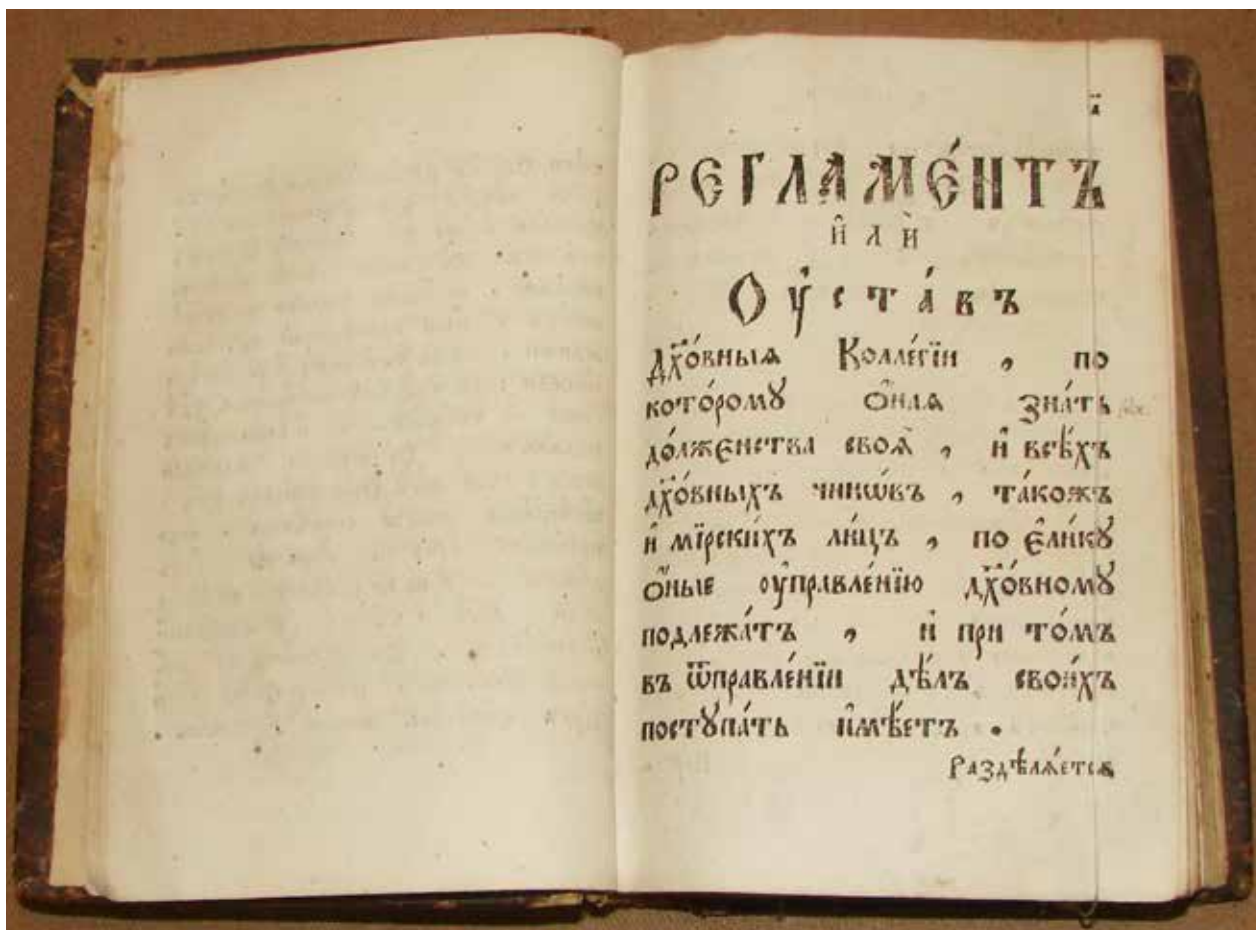 РЕГЛА́МЕ́НТЪ
и҆лѝ
Оу҆ста́въ
Дх҃о́вныѧ Колле́гїи , по
кото́рому ѻ҆́наѧ зна́ть
до́лженства своѧ̑ , и҆ всѣ́хъ
дх҃о́вныхъ чинѡ́въ , та́кожъ
и҆ мїрски́хъ ли́цъ , по є҆ли́кꙋ
ѻ҆́ные оу҆правле́нїю дх҃о́вномꙋ
подлежа́тъ , и҆ при то́мъ
въ ѿправле́нїи дѣ́лъ свои́хъ
поступа́ть и҆мѣ́етъ .
Раздѣлѧ́етсѧ